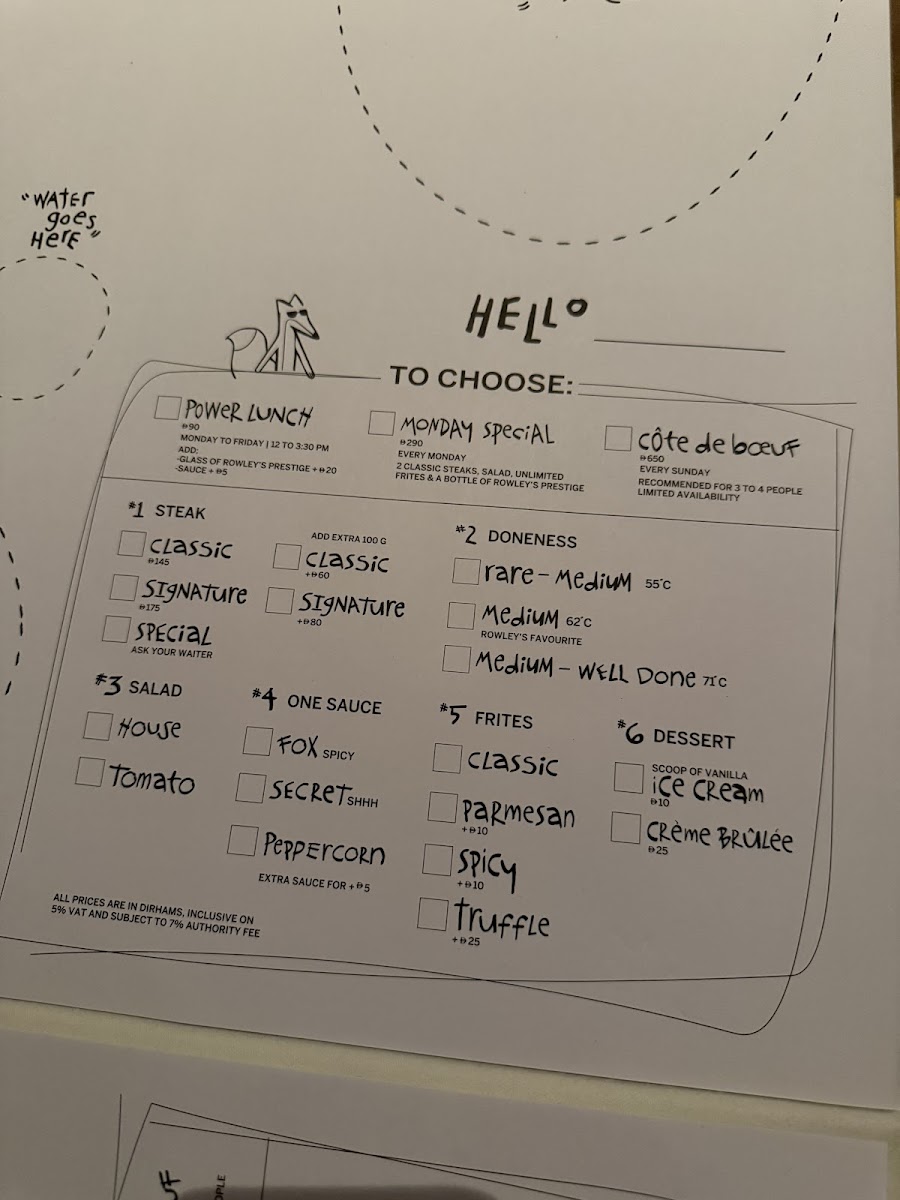 "WATER
goes
HERE"
HELLO
TO CHOOSE:
POWER LUNCH
90
MONDAY TO FRIDAY | 12 TO 3:30 PM
ADD:
-GLASS OF ROWLEY'S PRESTIGE + 20
-SAUCE + 5
MONDAY SPECIAL
290
EVERY MONDAY
2 CLASSIC STEAKS, SALAD, UNLIMITED
FRITES & A BOTTLE OF ROWLEY'S PRESTIGE
CÔTE de bœuf
650
EVERY SUNDAY
RECOMMENDED FOR 3 TO 4 PEOPLE
LIMITED AVAILABILITY
#1 STEAK
CLASSIC
145
SIGNATURE
175
SPECIAL
ASK YOUR WAITER
ADD EXTRA 100 G
CLASSIC
+60
SIGNATURE
+80
#2 DONENESS
rare - MEDIUM 55°C
MEDIUM 62°C
ROWLEY'S FAVOURITE
MEDIUM - WELL DONE 71°C
#3 SALAD
HOUSE
TOMATO
#4 ONE SAUCE
FOX SPICY
SECRET SHHH
PEPPERCORN
EXTRA SAUCE FOR + 5
#5 FRITES
CLASSIC
PARMESAN
+ 10
SPICY
+ 10
TRUFFLE
+ 25
#6 DESSERT
SCOOP OF VANILLA
ICE CREAM
10
CRÈME BRÛLÉE
25
ALL PRICES ARE IN DIRHAMS, INCLUSIVE ON
5% VAT AND SUBJECT TO 7% AUTHORITY FEE